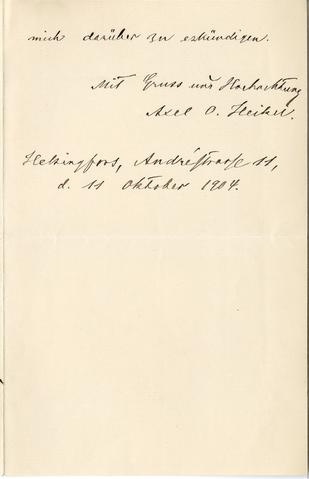 mich darüber zu erkündigen.
Mit Gruss und Hochachtung
Axel O. Heikel.
Helsingfors, Andréstrasse 11,
d. 11 Oktober 1904.